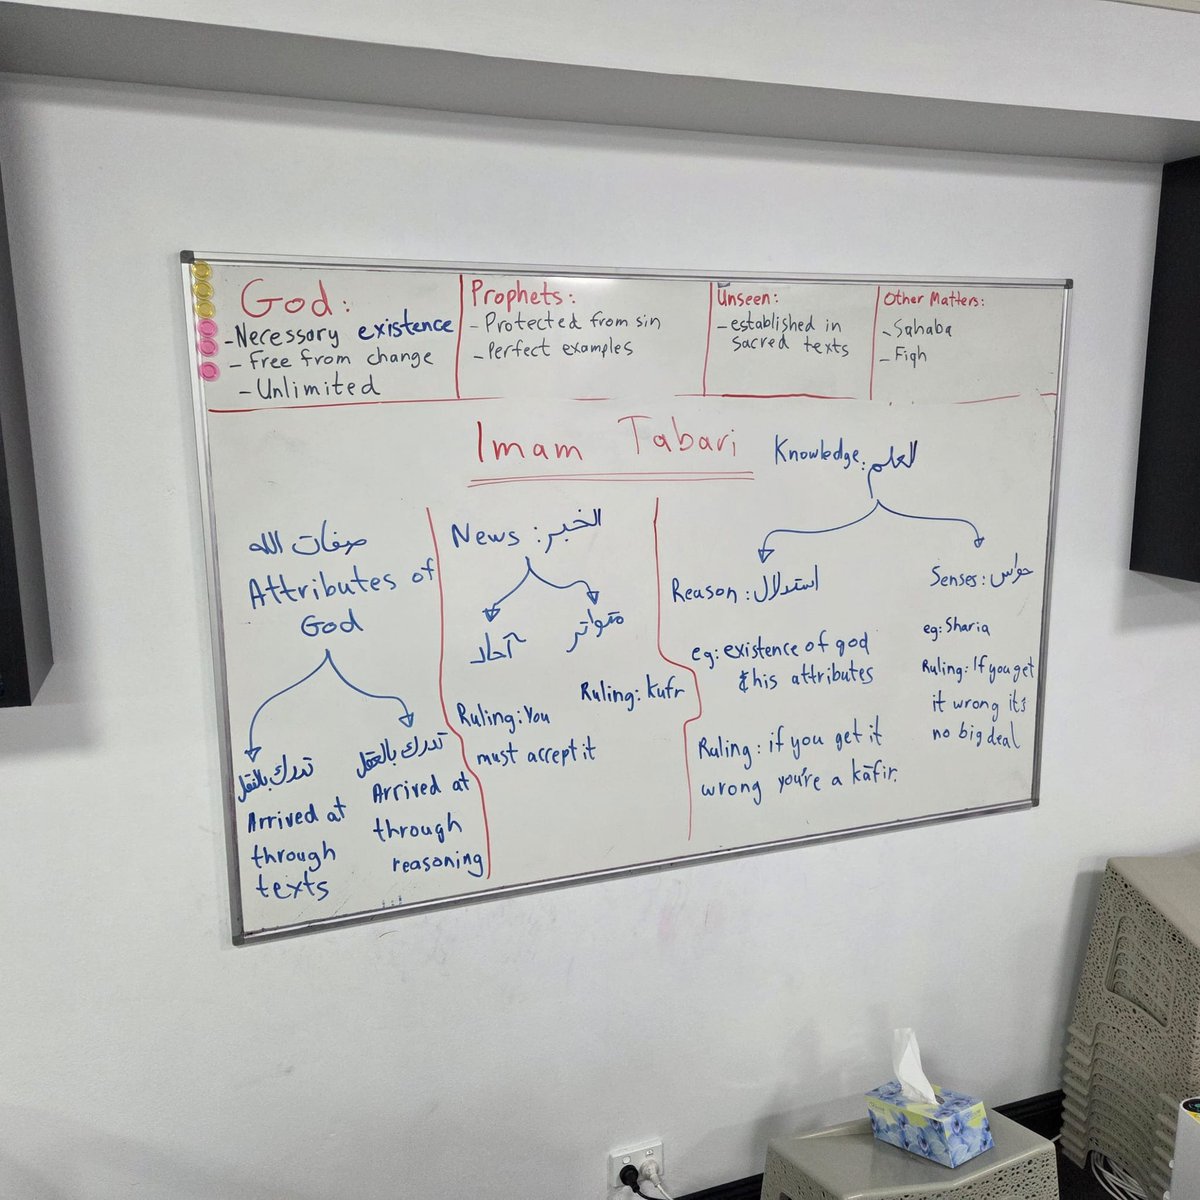 God:
-Necessary existence
- Free from change
- Unlimited
Prophets:
- Protected from sin
- Perfect examples
Unseen:
- established in
sacred texts
Other Matters:
- Sahaba
- Fiqh
Imam Tabari
Knowledge: العلم
صفات الله
Attributes of
God
تدرك بالنقل
Arrived at
through
texts
تدرك بالعقل
Arrived at
through
reasoning
News: الخبر
آحاد
متواتر
Ruling: You
must accept it
Ruling: kufr
Reason: استدلال
eg: existence of god
& his attributes
Ruling: if you get it
wrong you're a kāfir.
Senses: حواس
eg: Sharia
Ruling: If you get
it wrong it's
no big deal